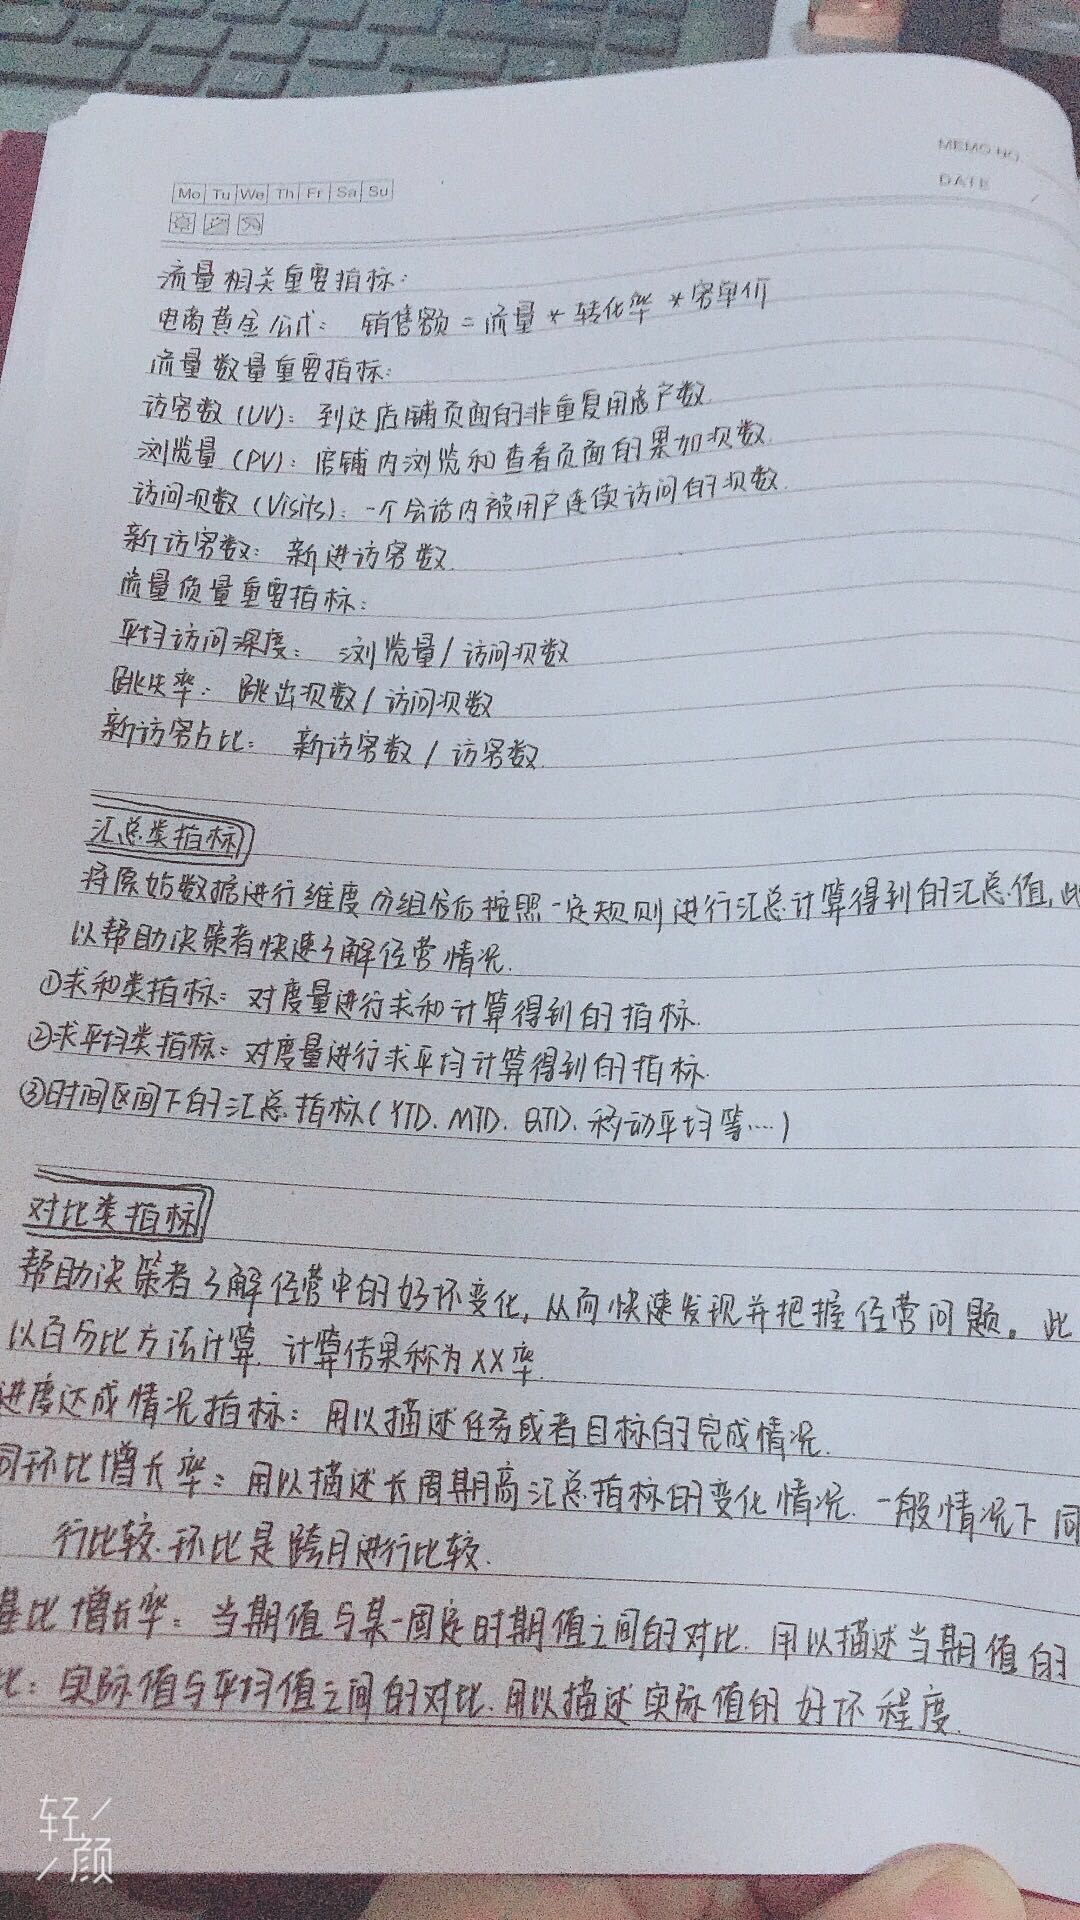 MEMO NO.
DATE
Mo Tu We Th Fr Sa Su
流量相关重要指标:
电商黄金公式: 销售额 = 流量 * 转化率 * 客单价
流量数量重要指标:
访客数(UV): 到达店铺页面的非重复用户数.
浏览量(PV): 店铺内浏览和查看页面的累加次数.
访问次数(Visits): 一个会话内被用户连续访问的次数.
新访客数: 新进访客数.
流量质量重要指标:
平均访问深度: 浏览量/访问次数
跳失率: 跳出次数/访问次数
新访客占比: 新访客数/访客数.
汇总类指标
将原始数据进行维度分组后按照一定规则进行汇总计算得到的汇总值,此
以帮助决策者快速了解经营情况.
①求和类指标: 对度量进行求和计算得到的指标.
②求平均类指标: 对度量进行求平均计算得到的指标.
③时间区间下的汇总指标(YTD、MTD、QTD、移动平均等....)
对比类指标
帮助决策者了解经营中的好坏变化,从而快速发现并把握经营问题。此
以百分比方法计算. 计算结果称为XX率.
进度达成情况指标: 用以描述任务或者目标的完成情况.
同环比增长率: 用以描述长周期高汇总指标的变化情况. 一般情况下同
行比较.环比是跨月进行比较.
基比增长率: 当期值与某一固定时期值之间的对比. 用以描述当期值的
比: 实际值与平均值之间的对比.用以描述实际值的好坏程度.
轻颜